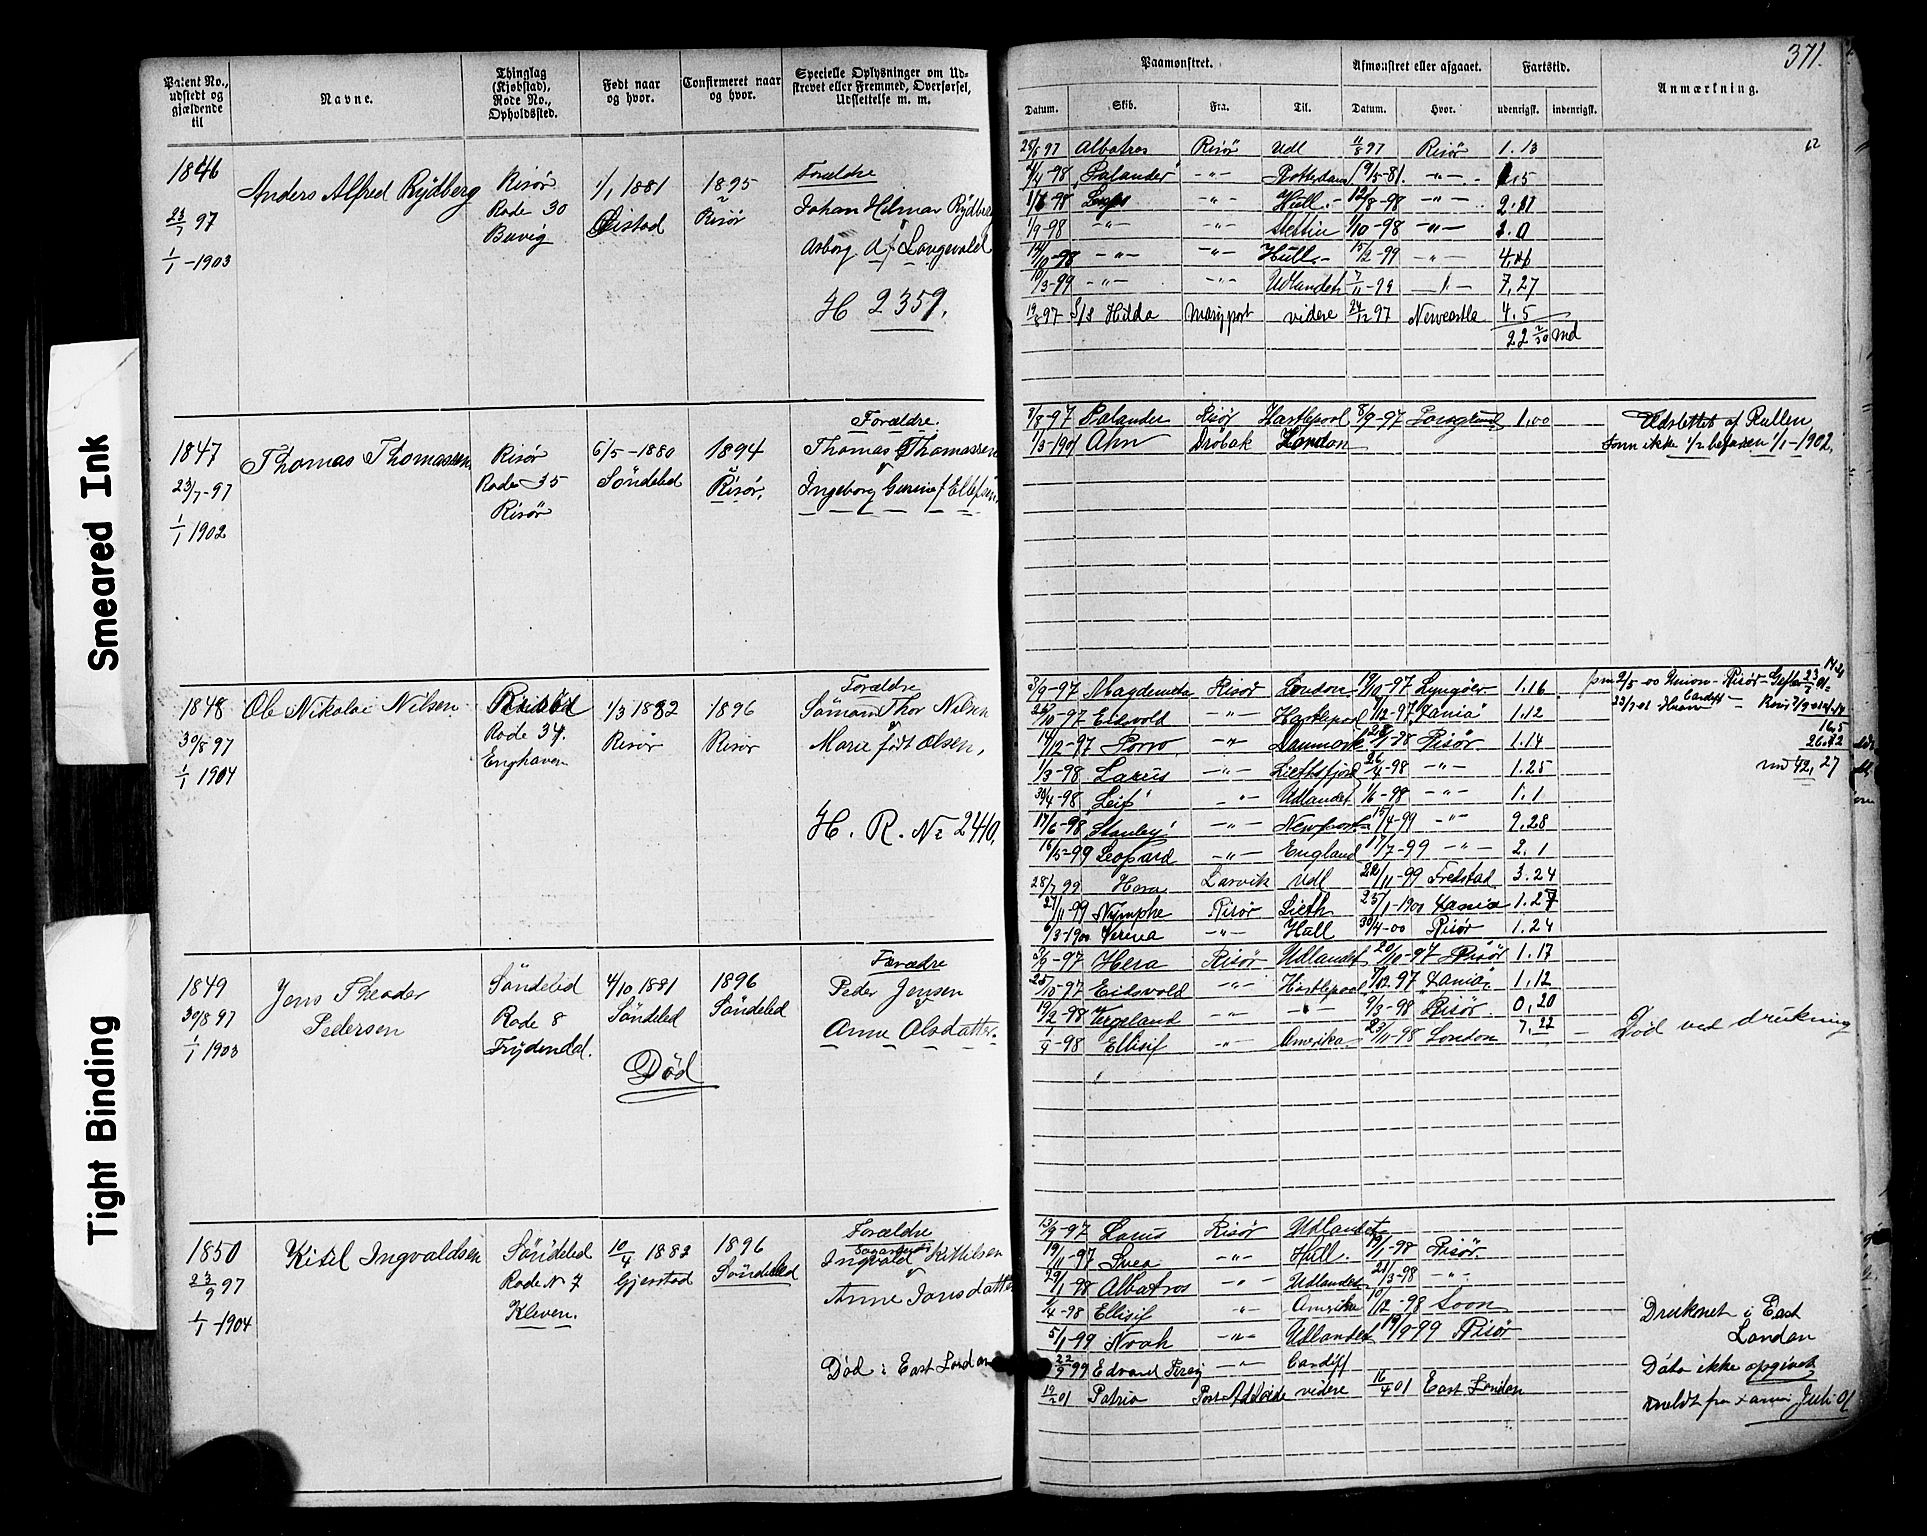 371.
Patent No., udstedt og gjældende til
Navne.
Thinglag (Kjøbstad), Rode No., Opholdssted.
Født naar og hvor.
Confirmeret naar og hvor.
Specielle Oplysninger om Udskrevet eller Fremmed, Overførsel, Udslettelse m. m.
Paamønstret.
Afmønstret eller afgaaet.
Fartstid.
Anmærkning.
Datum. Skib. Fra. Til. Datum. Hvor. udenrigsk. indenrigsk.
Smeared Ink
Tight Binding
1846
23/7 97
1/1 - 1903
Anders Alfred Rydberg
Risør
Rode 30
Buvig
1/1 1881
1895
Risør
Forældre
Johan Hilmar Rydberg
H 2359.
25/6 97 Albatros Risør Udl 11/8 97 Risør 1.13
-98 "Palander" -"- Rotterdam -"-
-98 -"- Hull -98 -"-
1/9-98 -"- -"- Stettin 1/10-98 -"-
14/10-98 -"- -"- Hull 15/2-99 -"-
10/3-99 -"- -"- Udlandet 7/11-99 7.27
S/S Hilda Maryport videre 24/12 97 Newcastle 4.5
22 md
1847
23/7-97
1/1 1902
Thomas Thomassen
Risør
Rode 35
Risør
6/5-1880
Søndeled
1894
Risør.
Forældre.
Thomas Thomassen
Ingeborg f Ellefsen
8/8-97 Palander Risør Hartlepool 8/9-97 1.00
1/3-1901 Ahn Drøbak London
Udslettet af Rullen
som ikke 1/2 befaren 1/1-1902.
1848
30/8 97
1/1 1904
Ole Nikolai Nilsen
Rode 34.
Enghaven
1/3 1882
Risør
1896
Risør
Forældre
Thor Nilsen
Marie født Olsen,
H. R. No 2440.
3/9-97 Magdemeta Risør London 19/10-97 Lyngøer 1.16
26/10-97 Eidsvold -"- Hartlepool /12-97 "Xania" 1.12
14/12-97 Porro -"- Danmark -98 Risør 1.14
1/3-98 Larus -"- 26/4-98 -"- 1.25
30/4-98 "Leif" -"- Udlandet 1/6-98 -"- 1.1
17/6-98 "Stanley" -"- Newport 15/4-99 -"- 9.28
16/5-99 Leopard -"- England 17/7-99 -"- 2.1
28/7 99 Hera Larvik Udl 22/11-99 Fredstad 3.24
27/11-99 Nymphe Risør Lieth 25/1-1900 Xania 1.27
6/3-1900 Verena -"- Hull 30/4-00 Risør 1.24
26.12
42,27
1849
30/8 97
1/1 1903
Jens Theodor
Pedersen
Søndeled
Rode 8
Frydendal.
4/10 1881
Søndeled
Død
1896
Søndeled
Forældre
Peder Jensen
Anne Olsdatter.
3/9-97 Hera Risør Udlandet 20/10-97 Risør 1.17
25/10-97 Eidsvold -"- Hartlepool /12 97 "Xania" 1.12
19/2-98 Vergeland -"- -"- 9/3-98 Risør 0,20
1/4-98 Ellisif -"- Amerika 23/11-98 London 7.22
Død ved drukning
1850
23/9 97
1/1-1904
Kitil Ingvaldsen
Søndeled
Rode N 7
Kleven.
10/4 1882
Gjerstad
1896
Søndeled
Forældre
Ingvald Kittilsen
Anne Jonsdatter
Død i East London
13/9-97 Larus Risør Udlandet
19/11-97 Svea -"- Hull. 19/1-98 Risør
29/1-98 Albatros -"- Udlandet 21/3-98 -"-
-98 Ellisif -"- Amerika 10/12-98 Soon
5/1-99 Noah -"- Udlandet 19/9-99 Risør
22/9 99 -"- Cardiff
19/2 01 Patria Port Adelaide videre 16/4 01 East London
Druknet i East
London
Dato ikke opgivet
meldt fra Juli 01